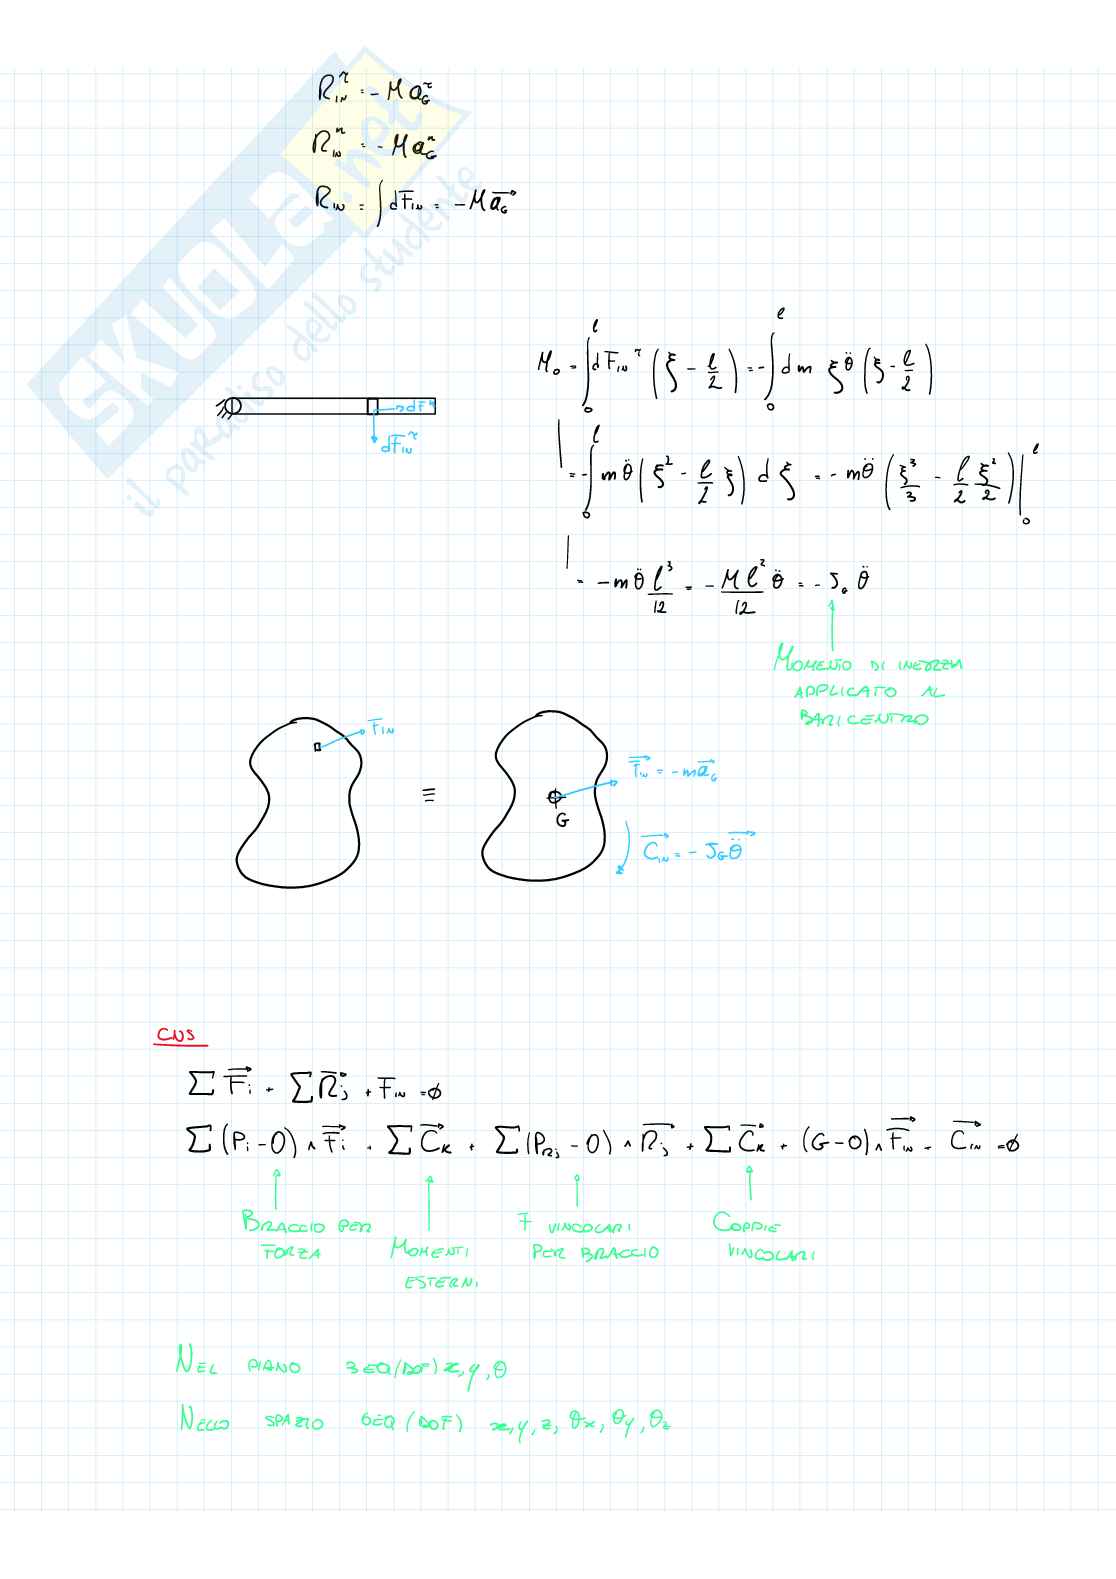 R_IN^τ = - M a_G^τ
R_IN^n = - M a_G^n
R_IN = ∫ dF_IN = - M a_G
SKUOLA.net
il paradiso dello studente
M_o = ∫_0^l dF_IN^τ (ξ - l/2) = - ∫_0^l dm ξ θ̈ (ξ - l/2)
dF^n
dF_IN^τ
= - ∫_0^l m θ̈ (ξ² - l/2 ξ) dξ = - m θ̈ (ξ³/3 - l/2 ξ²/2) |_0^l
= - m θ̈ l³/12 = - M l²/12 θ̈ = - J_G θ̈
MOMENTO DI INERZIA
APPLICATO AL
BARICENTRO
F_IN
≡
F_IN = - m a_G
G
C_IN = - J_G θ̈
CNS
∑ F_i + ∑ R_j + F_IN = ø
∑ (P_i - O) ∧ F_i + ∑ C_K + ∑ (P_Rj - O) ∧ R_j + ∑ C_K + (G - O) ∧ F_IN - C_IN = ø
BRACCIO PER
FORZA
MOMENTI
ESTERNI
F VINCOLARI
PER BRACCIO
COPPIE
VINCOLARI
NEL PIANO 3 EQ (DOF) x, y, θ
NELLO SPAZIO 6 EQ (DOF) x, y, z, θx, θy, θz